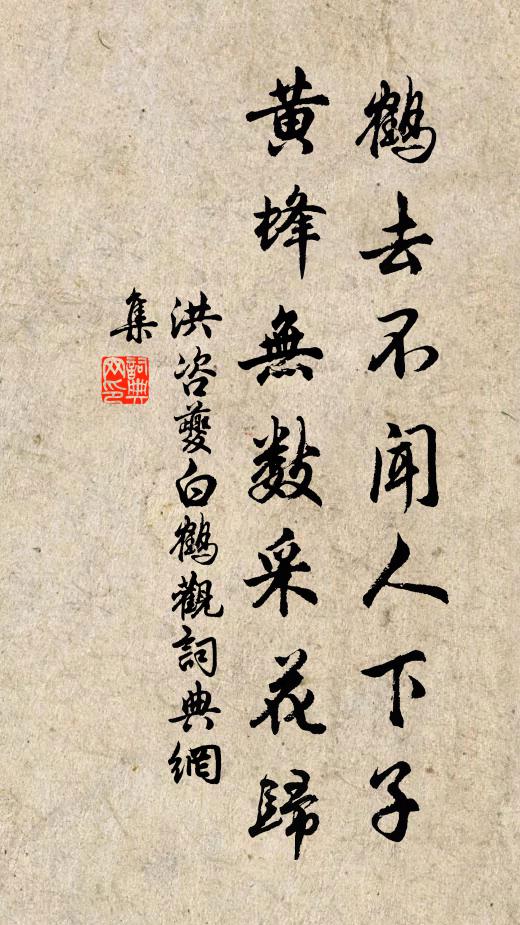 鶴去不聞人下子
黃蜂無數采花歸
洪咨夔白鶴觀詞典網
集
詞典
网印